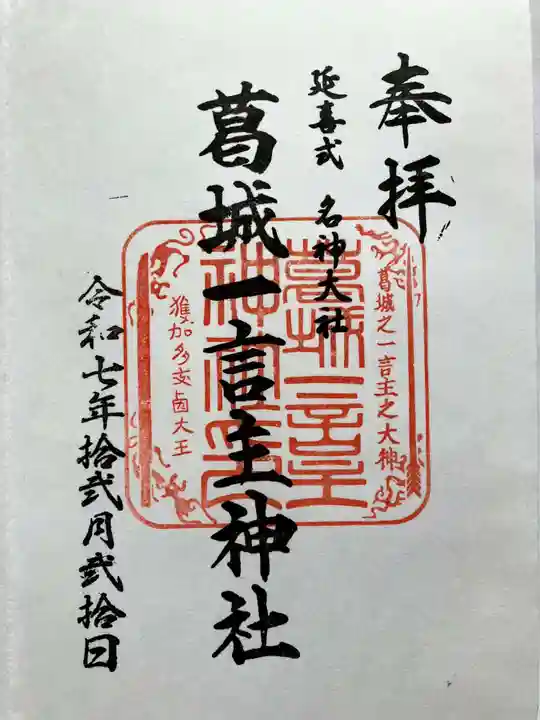 奉拝
延喜式 名神大社
葛城一言主神社
令和七年拾弐月弐拾日
葛城之一言主之大神
獲加多支鹵大王